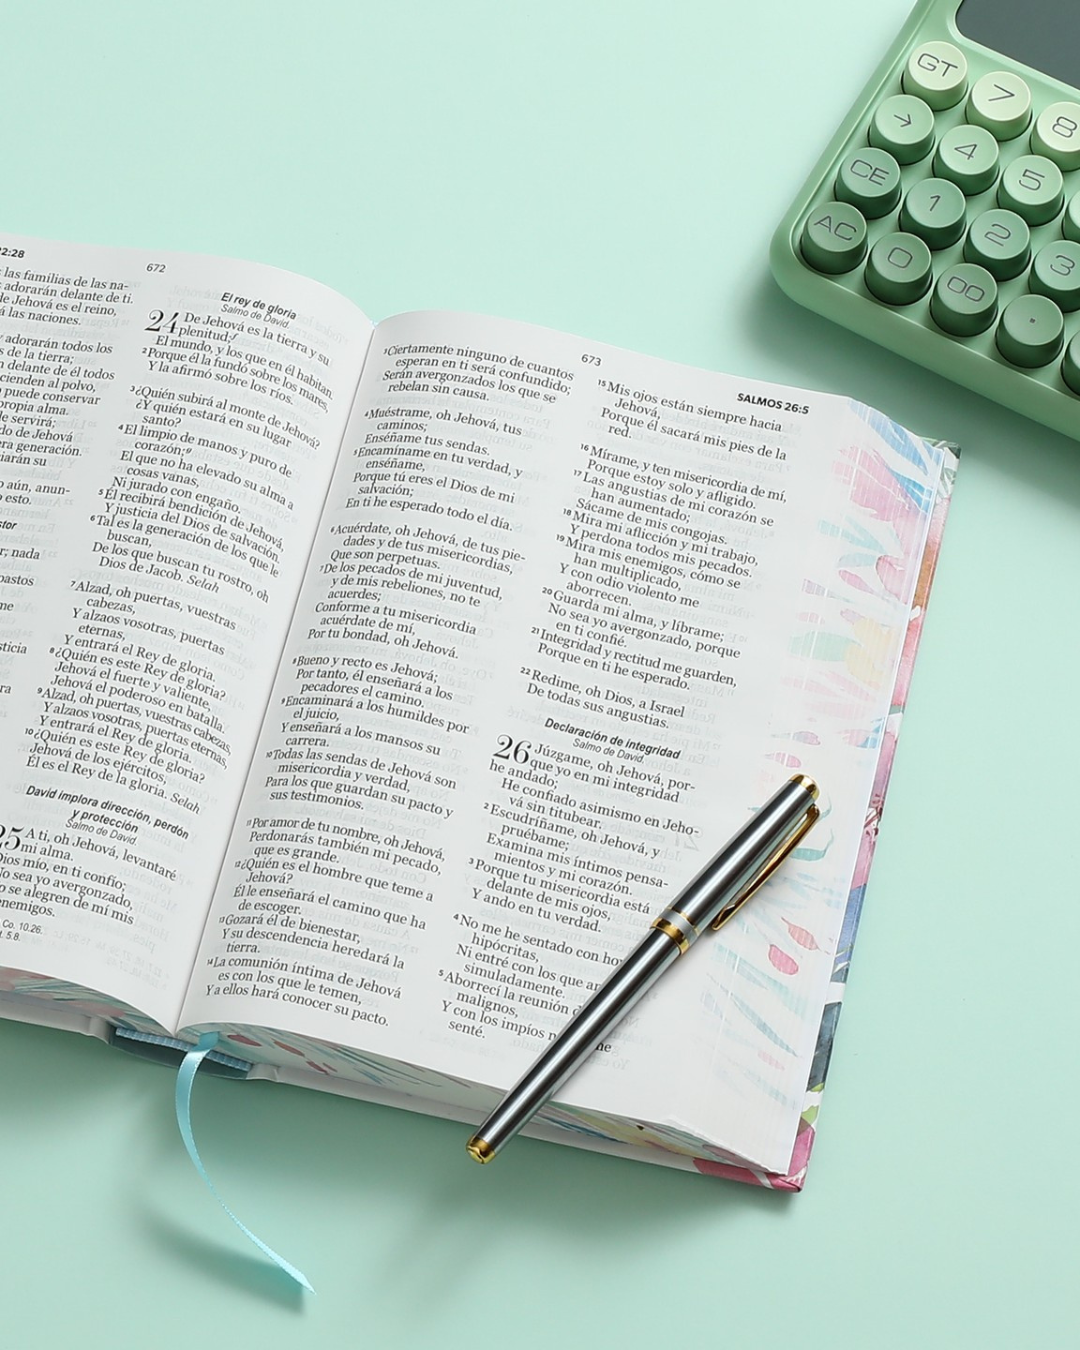 2:28
672
s las familias de las na-
adorarán delante de ti.
de Jehová es el reino,
á las naciones.
adorarán todos los
s de la tierra;
n delante de él todos
cienden al polvo,
puede conservar
propia alma.
le servirá;
do de Jehová
era generación.
ciarán su
o aún, anun-
o esto.
stor
r; nada
pastos
me
sticia
ra
El rey de gloria
Salmo de David.
24 De Jehová es la tierra y su
plenitud;
El mundo, y los que en él habitan.
2 Porque él la fundó sobre los mares,
Y la afirmó sobre los ríos.
3 ¿Quién subirá al monte de Jehová?
¿Y quién estará en su lugar
santo?
4 El limpio de manos y puro de
corazón;
El que no ha elevado su alma a
cosas vanas,
Ni jurado con engaño.
5 Él recibirá bendición de Jehová,
Y justicia del Dios de salvación.
6 Tal es la generación de los que le
buscan,
De los que buscan tu rostro, oh
Dios de Jacob. Selah
7 Alzad, oh puertas, vuestras
cabezas,
Y alzaos vosotras, puertas
eternas,
Y entrará el Rey de gloria.
8 ¿Quién es este Rey de gloria?
Jehová el fuerte y valiente,
Jehová el poderoso en batalla.
9 Alzad, oh puertas, vuestras cabezas,
Y alzaos vosotras, puertas eternas,
Y entrará el Rey de gloria.
10 ¿Quién es este Rey de gloria?
Jehová de los ejércitos,
Él es el Rey de la gloria. Selah
David implora dirección, perdón
y protección
Salmo de David.
25 A ti, oh Jehová, levantaré
mi alma.
Dios mío, en ti confío;
No sea yo avergonzado,
o se alegren de mí mis
enemigos.
Co. 10.26.
t. 5.8.
673
SALMOS 26:5
3 Ciertamente ninguno de cuantos
esperan en ti será confundido;
Serán avergonzados los que se
rebelan sin causa.
4 Muéstrame, oh Jehová, tus
caminos;
Enséñame tus sendas.
5 Encamíname en tu verdad, y
enséñame,
Porque tú eres el Dios de mi
salvación;
En ti he esperado todo el día.
6 Acuérdate, oh Jehová, de tus pie-
dades y de tus misericordias,
Que son perpetuas.
7 De los pecados de mi juventud,
y de mis rebeliones, no te
acuerdes;
Conforme a tu misericordia
acuérdate de mí,
Por tu bondad, oh Jehová.
8 Bueno y recto es Jehová;
Por tanto, él enseñará a los
pecadores el camino.
9 Encaminará a los humildes por
el juicio,
Y enseñará a los mansos su
carrera.
10 Todas las sendas de Jehová son
misericordia y verdad,
Para los que guardan su pacto y
sus testimonios.
11 Por amor de tu nombre, oh Jehová,
Perdonarás también mi pecado,
que es grande.
12 ¿Quién es el hombre que teme a
Jehová?
Él le enseñará el camino que ha
de escoger.
13 Gozará él de bienestar,
Y su descendencia heredará la
tierra.
14 La comunión íntima de Jehová
es con los que le temen,
Y a ellos hará conocer su pacto.
15 Mis ojos están siempre hacia
Jehová,
Porque él sacará mis pies de la
red.
16 Mírame, y ten misericordia de mí,
Porque estoy solo y afligido.
17 Las angustias de mi corazón se
han aumentado;
Sácame de mis congojas.
18 Mira mi aflicción y mi trabajo,
Y perdona todos mis pecados.
19 Mira mis enemigos, cómo se
han multiplicado,
Y con odio violento me
aborrecen.
20 Guarda mi alma, y líbrame;
No sea yo avergonzado, porque
en ti confié.
21 Integridad y rectitud me guarden,
Porque en ti he esperado.
22 Redime, oh Dios, a Israel
De todas sus angustias.
Declaración de integridad
Salmo de David.
26 Júzgame, oh Jehová, por-
que yo en mi integridad
he andado;
He confiado asimismo en Jeho-
vá sin titubear.
2 Escudríñame, oh Jehová, y
pruébame;
Examina mis íntimos pensa-
mientos y mi corazón.
3 Porque tu misericordia está
delante de mis ojos,
Y ando en tu verdad.
4 No me he sentado con ho
hipócritas,
Ni entré con los que an
simuladamente.
5 Aborrecí la reunión d
malignos,
Y con los impíos n me
senté.
GT 7 8
→ 4 5
CE 1 2 3
AC 0 00 .